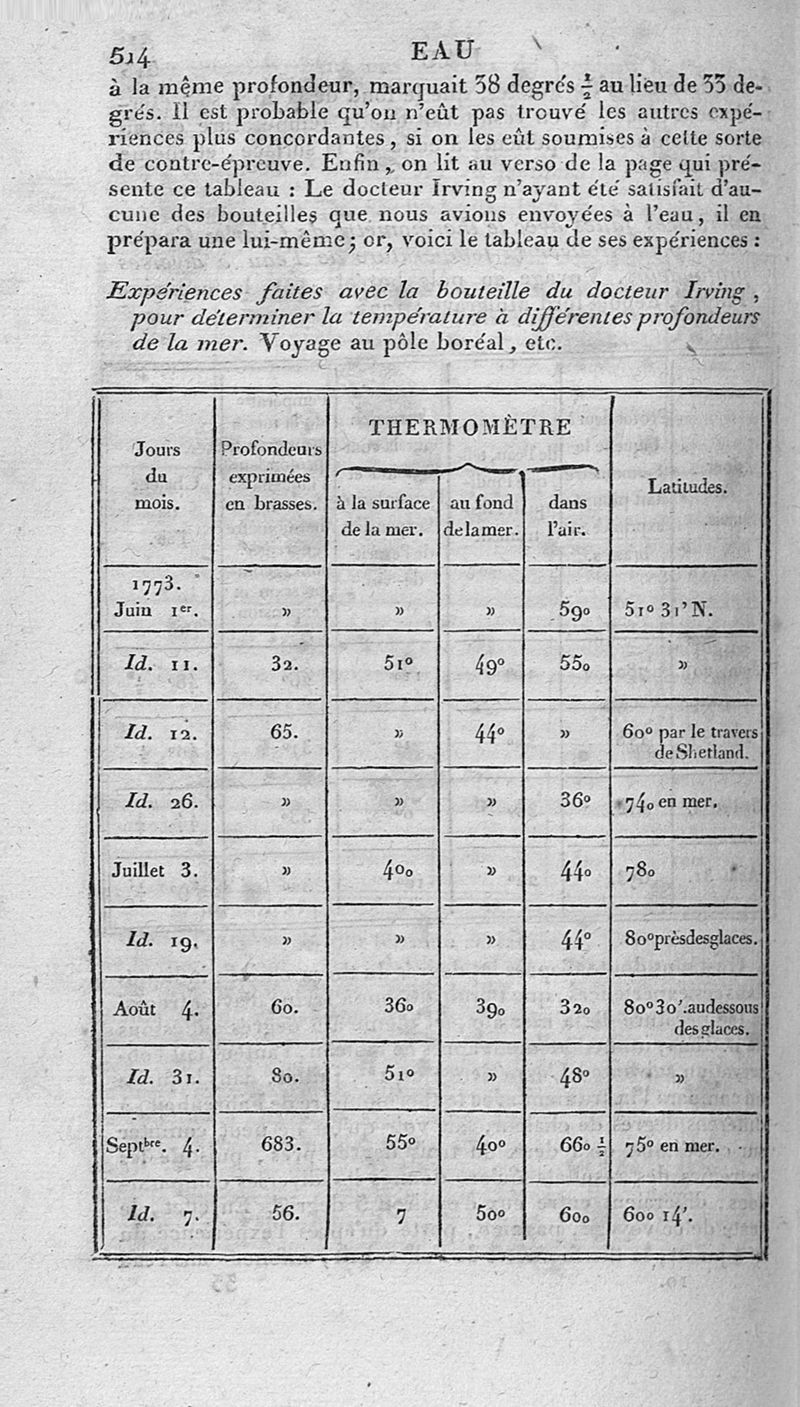 514 EAU
à la même profondeur, marquait 38 degrés ½ au lieu de 33 de-
grés. Il est probable qu'on n'eût pas trouvé les autres expé-
riences plus concordantes, si on les eût soumises à cette sorte
de contre-épreuve. Enfin, on lit au verso de la page qui pré-
sente ce tableau : Le docteur Irving n'ayant été satisfait d'au-
cune des bouteilles que nous avions envoyées à l'eau, il en
prépara une lui-même; or, voici le tableau de ses expériences :
Expériences faites avec la bouteille du docteur Irving,
pour déterminer la température à différentes profondeurs
de la mer. Voyage au pôle boréal, etc.
Jours du mois. | Profondeurs exprimées en brasses. | THERMOMÈTRE à la surface de la mer. | au fond de la mer. | dans l'air. | Latitudes.
1773.
Juin 1er. » » » 59° 51° 31' N.
Id. 11. 32. 51° 49° 55° »
Id. 12. 65. » 44° » 60° par le travers
de Shetland.
Id. 26. » » » 36° 74° en mer.
Juillet 3. » 40° » 44° 78°
Id. 19. » » » 44° 80° près des glaces.
Août 4. 60. 36° 39° 32° 80° 30'. au dessous
des glaces.
Id. 31. 80. 51° » 48° »
Septbre. 4. 683. 55° 40° 66° ½ 75° en mer.
Id. 7. 56. 7 50° 60° 60° 14'.